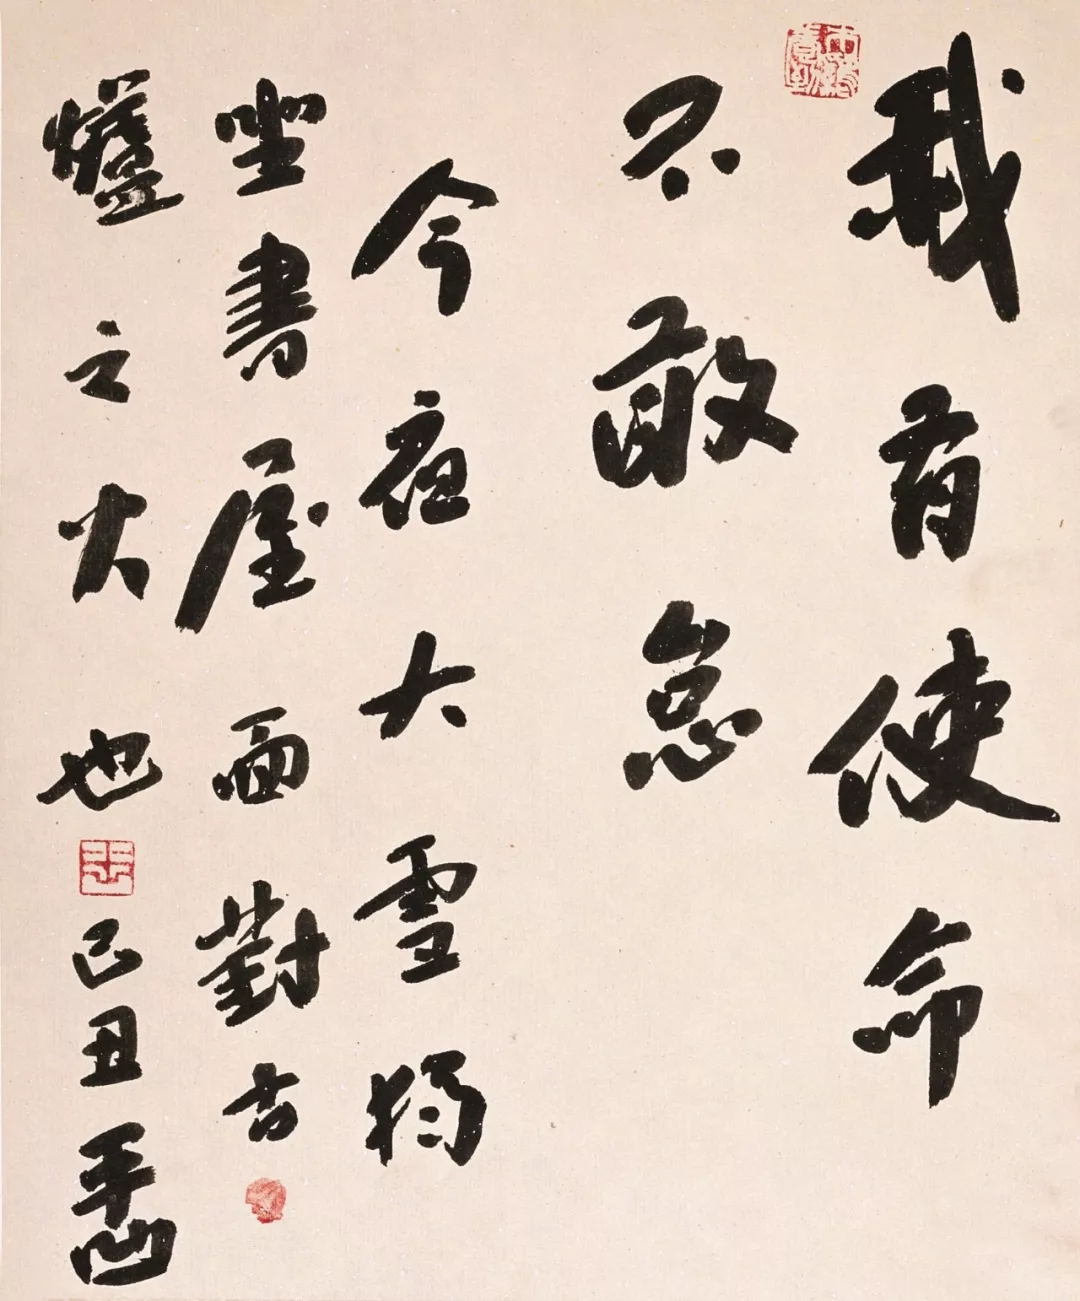 我有使命
不敢怠
今夜大雪独
坐書屋面對古
爐之火也
己丑平凹